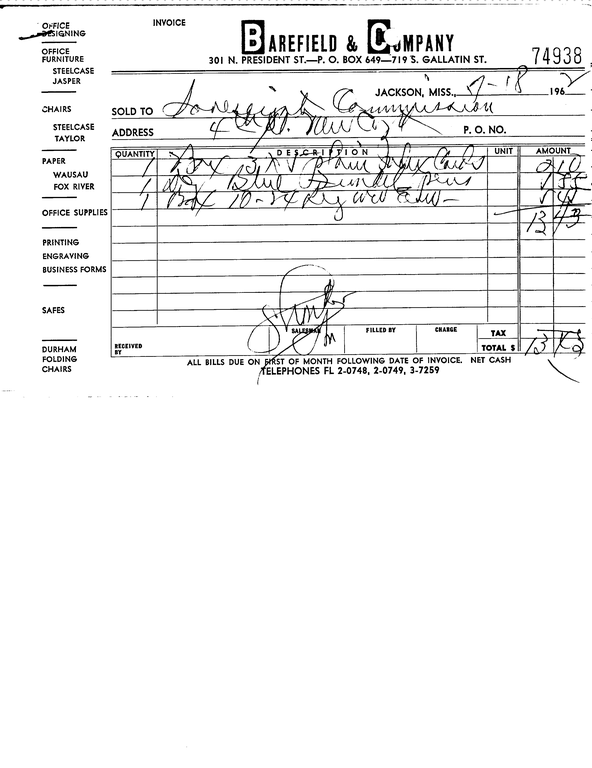 INVOICE
OFFICE DESIGNING
OFFICE FURNITURE
STEELCASE
JASPER
CHAIRS
STEELCASE
TAYLOR
PAPER
WAUSAU
FOX RIVER
OFFICE SUPPLIES
PRINTING
ENGRAVING
BUSINESS FORMS
SAFES
DURHAM FOLDING CHAIRS
BAREFIELD & COMPANY
301 N. PRESIDENT ST.—P. O. BOX 649—719 S. GALLATIN ST.
74938
JACKSON, MISS., 7-18 1962
SOLD TO Sovereignty Commission
ADDRESS P. O. NO.
QUANTITY DESCRIPTION UNIT AMOUNT
1 Box
1 Pens
1 Box 10-24 Reg
SALESMAN FILLED BY CHARGE TAX
RECEIVED BY TOTAL $
ALL BILLS DUE ON FIRST OF MONTH FOLLOWING DATE OF INVOICE. NET CASH
TELEPHONES FL 2-0748, 2-0749, 3-7259